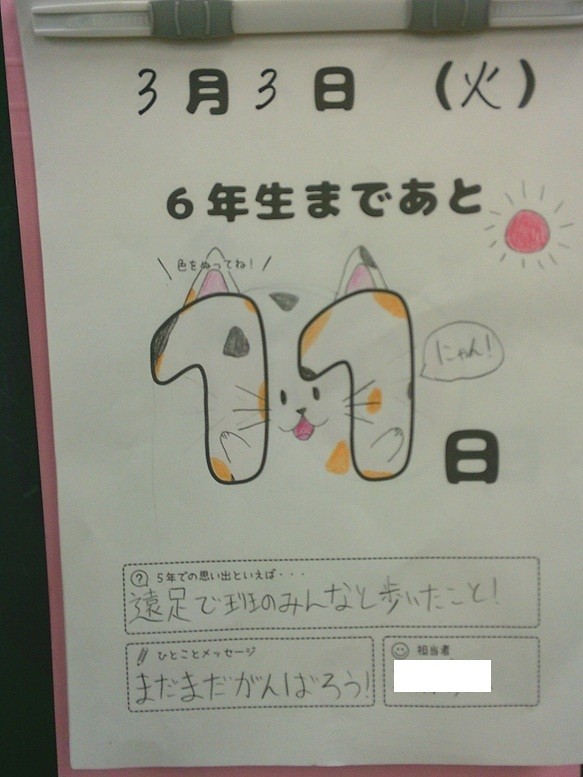 3月3日(火)
6年生まであと
\ 色をぬってね! /
11日
にゃん!
? 5年での思い出といえば・・・
遠足で班のみんなと歩いたこと!
ひとことメッセージ
まだまだがんばろう!
担当者